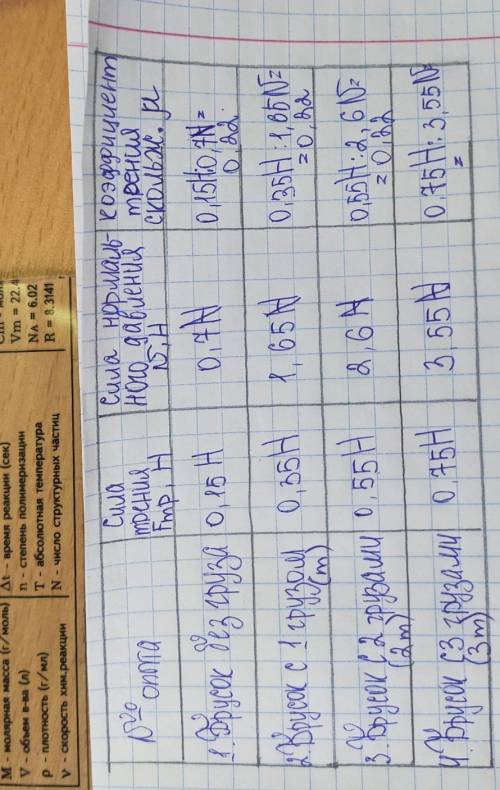 M - молярная масса (г/моль)
V - объем в-ва (л)
ρ - плотность (г/мл)
v - скорость хим.реакции
Δt - время реакции (сек)
n - степень полимеризации
T - абсолютная температура
N - число структурных частиц
Vm = 22.4
NA = 6.02
R = 8.3141
№ опыта
Сила
трения
Fтр, Н
Сила нормаль-
ного давления
N, Н
коэффициент
трения
скольж. μ
1. Брусок без груза
0,15 Н
0,7N
0,15Н:0,7N=
0,22.
2. Брусок с 1 грузом
(m)
0,35Н
1,65N
0,35Н:1,65N=
=0,22
3. Брусок с 2 грузами
(2m)
0,55Н
2,6 N
0,55Н:2,6N=
=0,22
4. Брусок с 3 грузами
(3m)
0,75Н
3,55N
0,75Н:3,55N
=